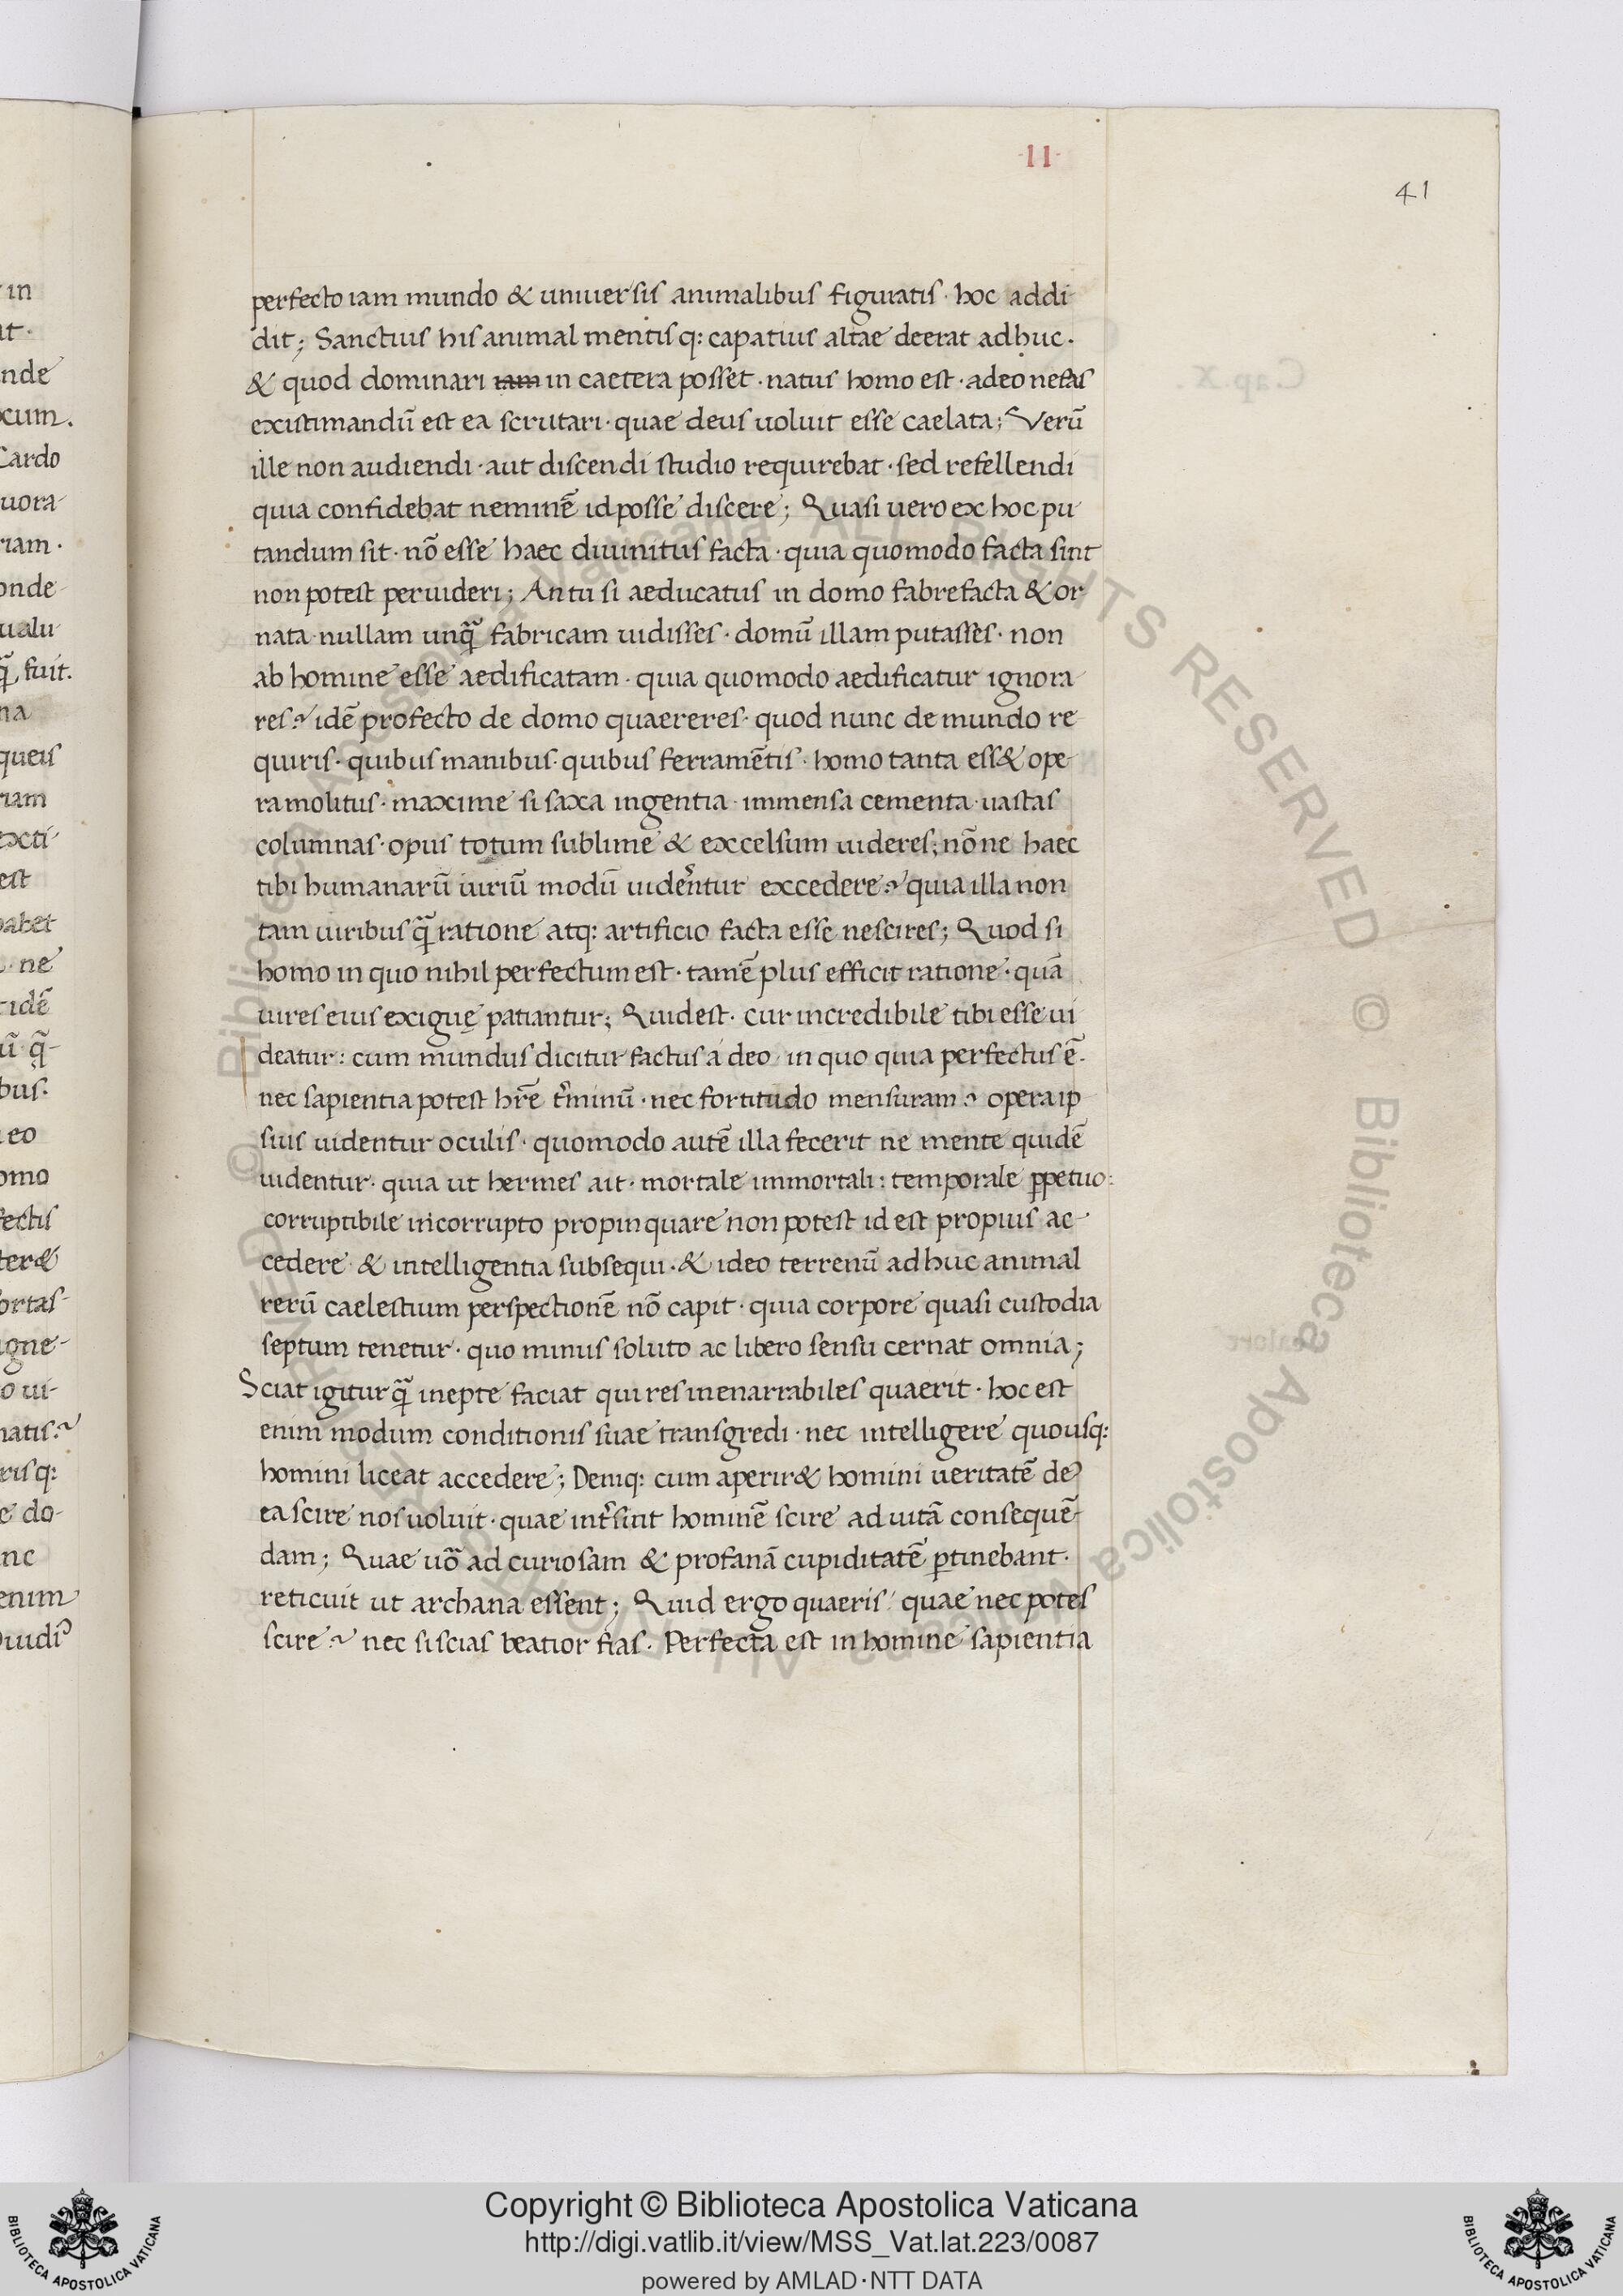 ·II·
41
perfecto iam mundo & uniuersis animalibus figuratis · hoc addi
dit; Sanctius his animal mentisq: capatius altae deerat adhuc ·
& quod dominari iam in caetera posset · natus homo est · adeo nefas
existimandū est ea scrutari · quae deus uoluit esse caelata; Verū
ille non audiendi · aut discendi studio requirebat · sed refellendi
quia confidebat neminē id posse discere; Quasi uero ex hoc pu
tandum sit · nō esse haec diuinitus facta · quia quomodo facta sint
non potest peruideri; An tu si aeducatus in domo fabrefacta & or
nata nullam unq̄ fabricam uidisses · domū illam putasses · non
ab homine esse aedificatam · quia quomodo aedificatur ignora
res? idē profecto de domo quaereres · quod nunc de mundo re
quiris · quibus manibus · quibus ferramētis · homo tanta ess& ope
ra molitus · maxime si saxa ingentia · immensa cementa · uastas
columnas · opus totum sublime & excelsum uideres; nōne haec
tibi humanarū uiriū modū uidētur excedere? quia illa non
tam uiribus q̄ ratione atq: artificio facta esse nescires; Quod si
homo in quo nihil perfectum est · tamē plus efficit ratione · quā
uires eius exiguę patiantur; Quid est · cur incredibile tibi esse ui
deatur: cum mundus dicitur factus a deo · in quo quia perfectus ē ·
nec sapientia potest hr̄e t̄minū · nec fortitudo mensuram? opera ip
sius uidentur oculis · quomodo autē illa fecerit ne mente quidē
uidentur · quia ut hermes ait · mortale immortali: temporale ꝑpetuo:
corruptibile incorrupto propinquare non potest id est propius ac-
cedere & intelligentia subsequi · & ideo terrenū adhuc animal
rerū caelestium perspectionē nō capit · quia corpore quasi custodia
septum tenetur · quo minus soluto ac libero sensu cernat omnia;
Sciat igitur q̄ inepte faciat qui res inenarrabiles quaerit · hoc est
enim modum conditionis suae transgredi · nec intelligere quousq:
homini liceat accedere; Deniq: cum aperir& homini ueritatē de᾽
ea scire nos uoluit · quae int̄sint hominē scire ad uitā consequē-
dam; Quae uō ad curiosam & profanā cupiditatē ꝑtinebant ·
reticuit ut archana essent; Quid ergo quaeris quae nec potes
scire? nec si scias beatior fias · Perfecta est in homine sapientia
Copyright © Biblioteca Apostolica Vaticana
http://digi.vatlib.it/view/MSS_Vat.lat.223/0087
powered by AMLAD·NTT DATA